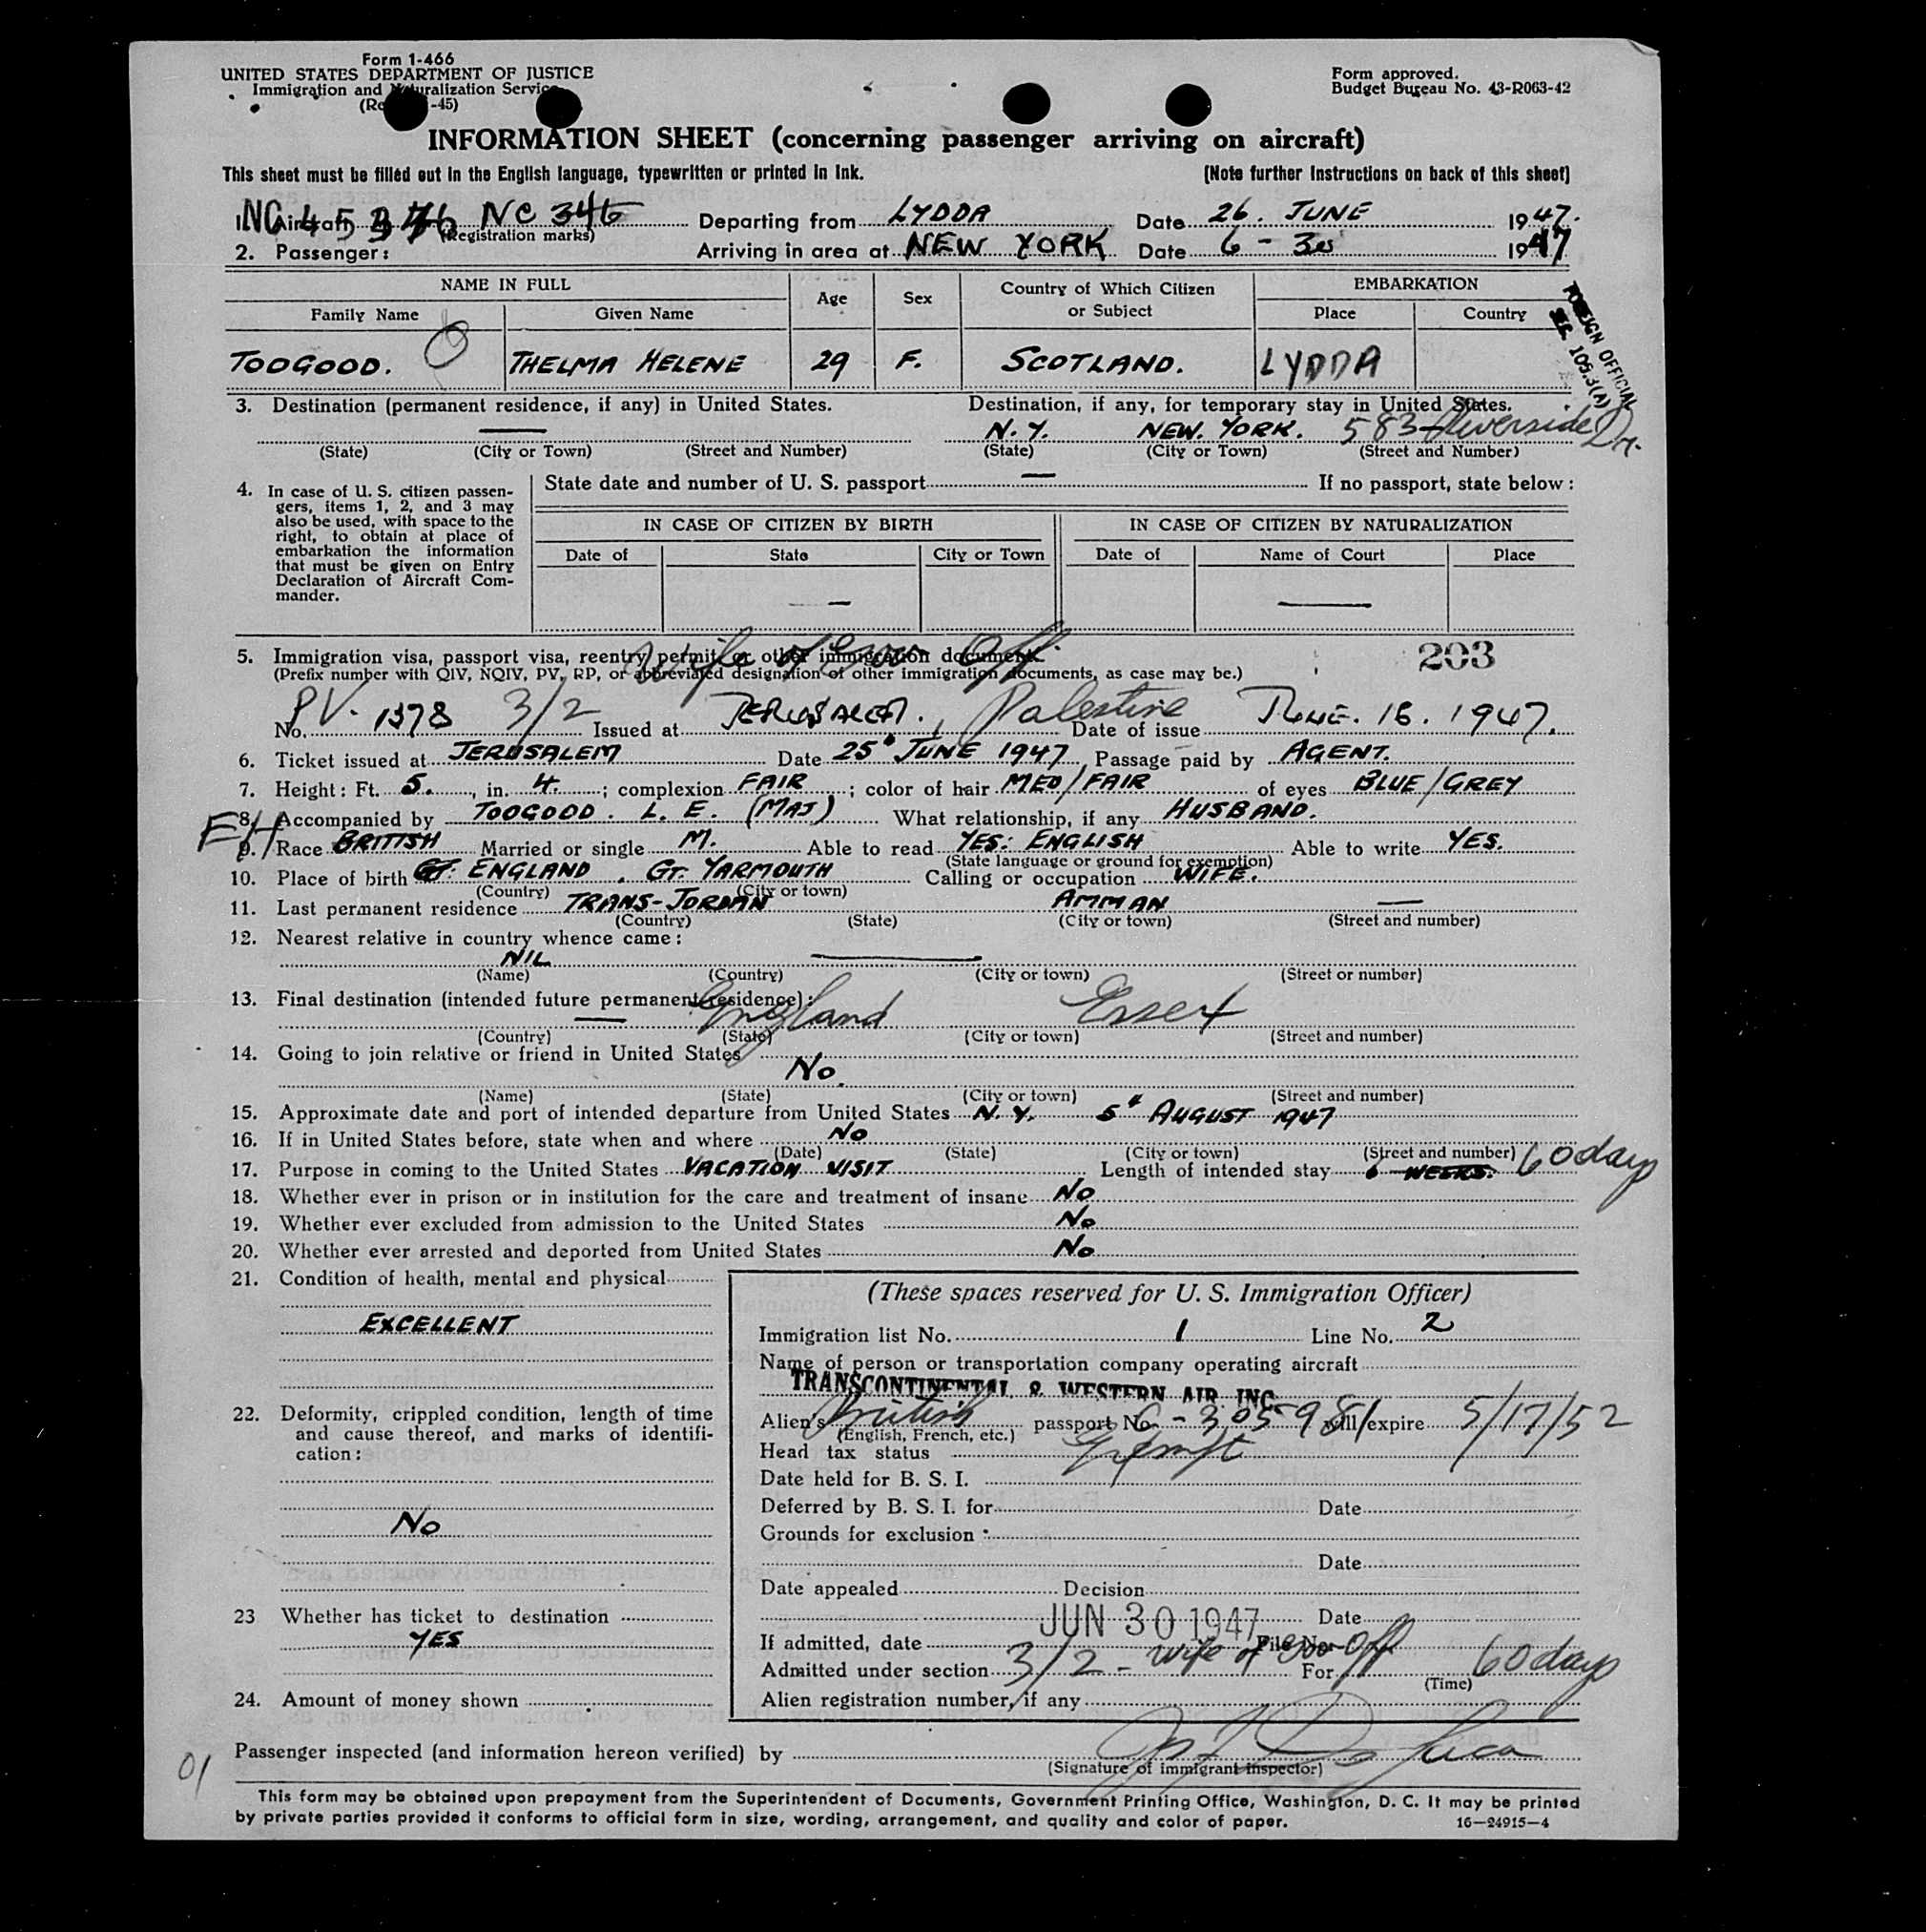 Form 1-466
UNITED STATES DEPARTMENT OF JUSTICE
Immigration and Naturalization Service
-45)
Form approved.
Budget Bureau No. 43-R063-42
INFORMATION SHEET (concerning passenger arriving on aircraft)
This sheet must be filled out in the English language, typewritten or printed in ink.
(Note further instructions on back of this sheet)
1. Aircraft NC 346 Departing from LYDDA Date 26. JUNE 1947.
(Registration marks)
2. Passenger: Arriving in area at NEW YORK Date 6-30 1947
NAME IN FULL Age Sex Country of Which Citizen or Subject EMBARKATION
Family Name Given Name Place Country
TOOGOOD. THELMA HELENE 29 F. SCOTLAND. LYDDA
FOREIGN OFFICIAL
SEC. 109.3(A)
3. Destination (permanent residence, if any) in United States. Destination, if any, for temporary stay in United States.
— N.Y. NEW. YORK. 583 Riverside Dr.
(State) (City or Town) (Street and Number) (State) (City or Town) (Street and Number)
4. In case of U. S. citizen passen-
gers, items 1, 2, and 3 may
also be used, with space to the
right, to obtain at place of
embarkation the information
that must be given on Entry
Declaration of Aircraft Com-
mander.
State date and number of U. S. passport — If no passport, state below:
IN CASE OF CITIZEN BY BIRTH IN CASE OF CITIZEN BY NATURALIZATION
Date of State City or Town Date of Name of Court Place
— —
Wife of Gov Off.
203
5. Immigration visa, passport visa, reentry permit, or other immigration document.
(Prefix number with QIV, NQIV, PV, RP, or abbreviated designation of other immigration documents, as case may be.)
No. PV- 1378 3/2 Issued at JERUSALEM, Palestine Date of issue JUNE. 16. 1947.
6. Ticket issued at JERUSALEM Date 25 JUNE 1947 Passage paid by AGENT.
7. Height: Ft. 5., in. 4.; complexion FAIR; color of hair MED/FAIR of eyes BLUE/GREY
8. Accompanied by TOOGOOD. L. E. (MAJ) What relationship, if any HUSBAND.
EH
9. Race BRITISH Married or single M. Able to read YES: ENGLISH Able to write YES.
(State language or ground for exemption)
10. Place of birth ENGLAND. GT. YARMOUTH Calling or occupation WIFE.
(Country) (City or town)
11. Last permanent residence TRANS-JORDAN AMMAN —
(Country) (State) (City or town) (Street and number)
12. Nearest relative in country whence came:
NIL —
(Name) (Country) (City or town) (Street or number)
13. Final destination (intended future permanent residence):
— England Essex
(Country) (State) (City or town) (Street and number)
14. Going to join relative or friend in United States
No.
(Name) (State) (City or town) (Street and number)
15. Approximate date and port of intended departure from United States N.Y. 5th AUGUST 1947
16. If in United States before, state when and where No
(Date) (State) (City or town) (Street and number)
17. Purpose in coming to the United States VACATION VISIT Length of intended stay 6 WEEKS. 60 days
18. Whether ever in prison or in institution for the care and treatment of insane No
19. Whether ever excluded from admission to the United States No
20. Whether ever arrested and deported from United States No
21. Condition of health, mental and physical
EXCELLENT
22. Deformity, crippled condition, length of time
and cause thereof, and marks of identifi-
cation:
No
23 Whether has ticket to destination
YES
24. Amount of money shown
(These spaces reserved for U. S. Immigration Officer)
Immigration list No. 1 Line No. 2
Name of person or transportation company operating aircraft
TRANSCONTINENTAL & WESTERN AIR, INC.
Alien's British passport No. C-305981 will expire 5/17/52
(English, French, etc.)
Head tax status Exempt
Date held for B. S. I.
Deferred by B. S. I. for Date
Grounds for exclusion
Date
Date appealed Decision
Date
If admitted, date JUN 30 1947 File No.
Admitted under section 3/2 - Wife of Gov Off For 60 days
(Time)
Alien registration number, if any
Passenger inspected (and information hereon verified) by
(Signature of immigrant inspector)
01
This form may be obtained upon prepayment from the Superintendent of Documents, Government Printing Office, Washington, D. C. It may be printed
by private parties provided it conforms to official form in size, wording, arrangement, and quality and color of paper.
16—24915—4